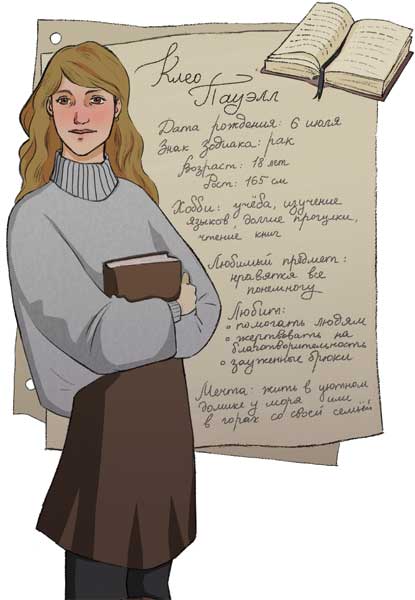 Клео
Пауэлл
Дата рождения: 6 июля
Знак зодиака: рак
Возраст: 18 лет
Рост: 165 см
Хобби: учёба, изучение
языков, долгие прогулки,
чтение книг
Любимый предмет:
нравятся все
понемногу
Любит:
• помогать людям
• жертвовать на
благотворительность
• зауженные брюки
Мечта: жить в уютном
домике у моря или
в горах со своей семьёй